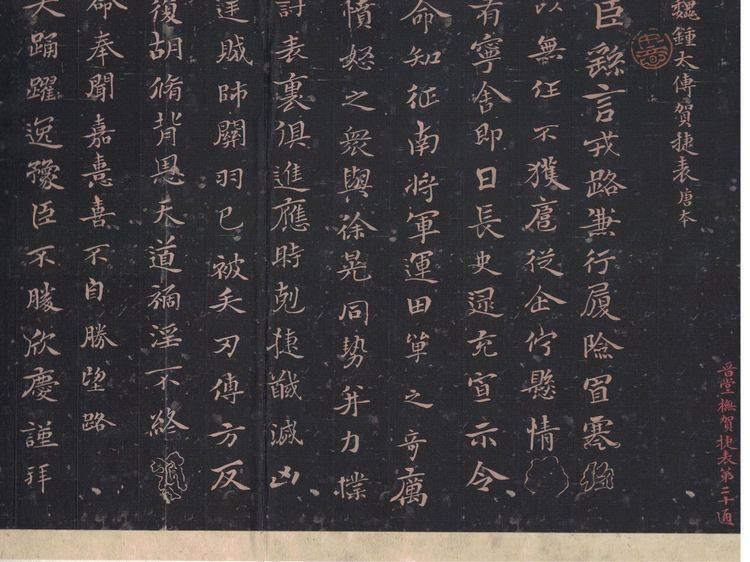 魏鍾太傅賀捷表唐本
晉堂橅賀捷表第二十通
臣繇言戎路兼行履險冒寒
以無任不獲扈從企佇懸情
有寧舍即日長史逯充宣示令
命知征南將軍運田單之奇厲
憤怒之衆與徐晃同勢并力撲
討表裏俱進應時剋捷馘滅凶
逆賊帥關羽已被矢刃傅方反
復胡脩背恩天道禍淫不終
命奉聞嘉憙喜不自勝望路
笑踊躍逸豫臣不勝欣慶謹拜